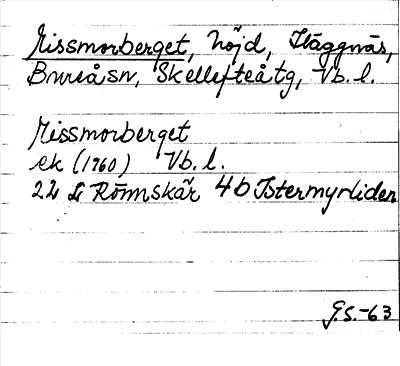 Missmorberget, höjd, Häggnäs,
Bureå sn, Skellefteå tg, Vb. l.
Missmorberget
ek (1960) Vb. l.
22 L Rönnskär 4b Istermyrliden
G.S.-63